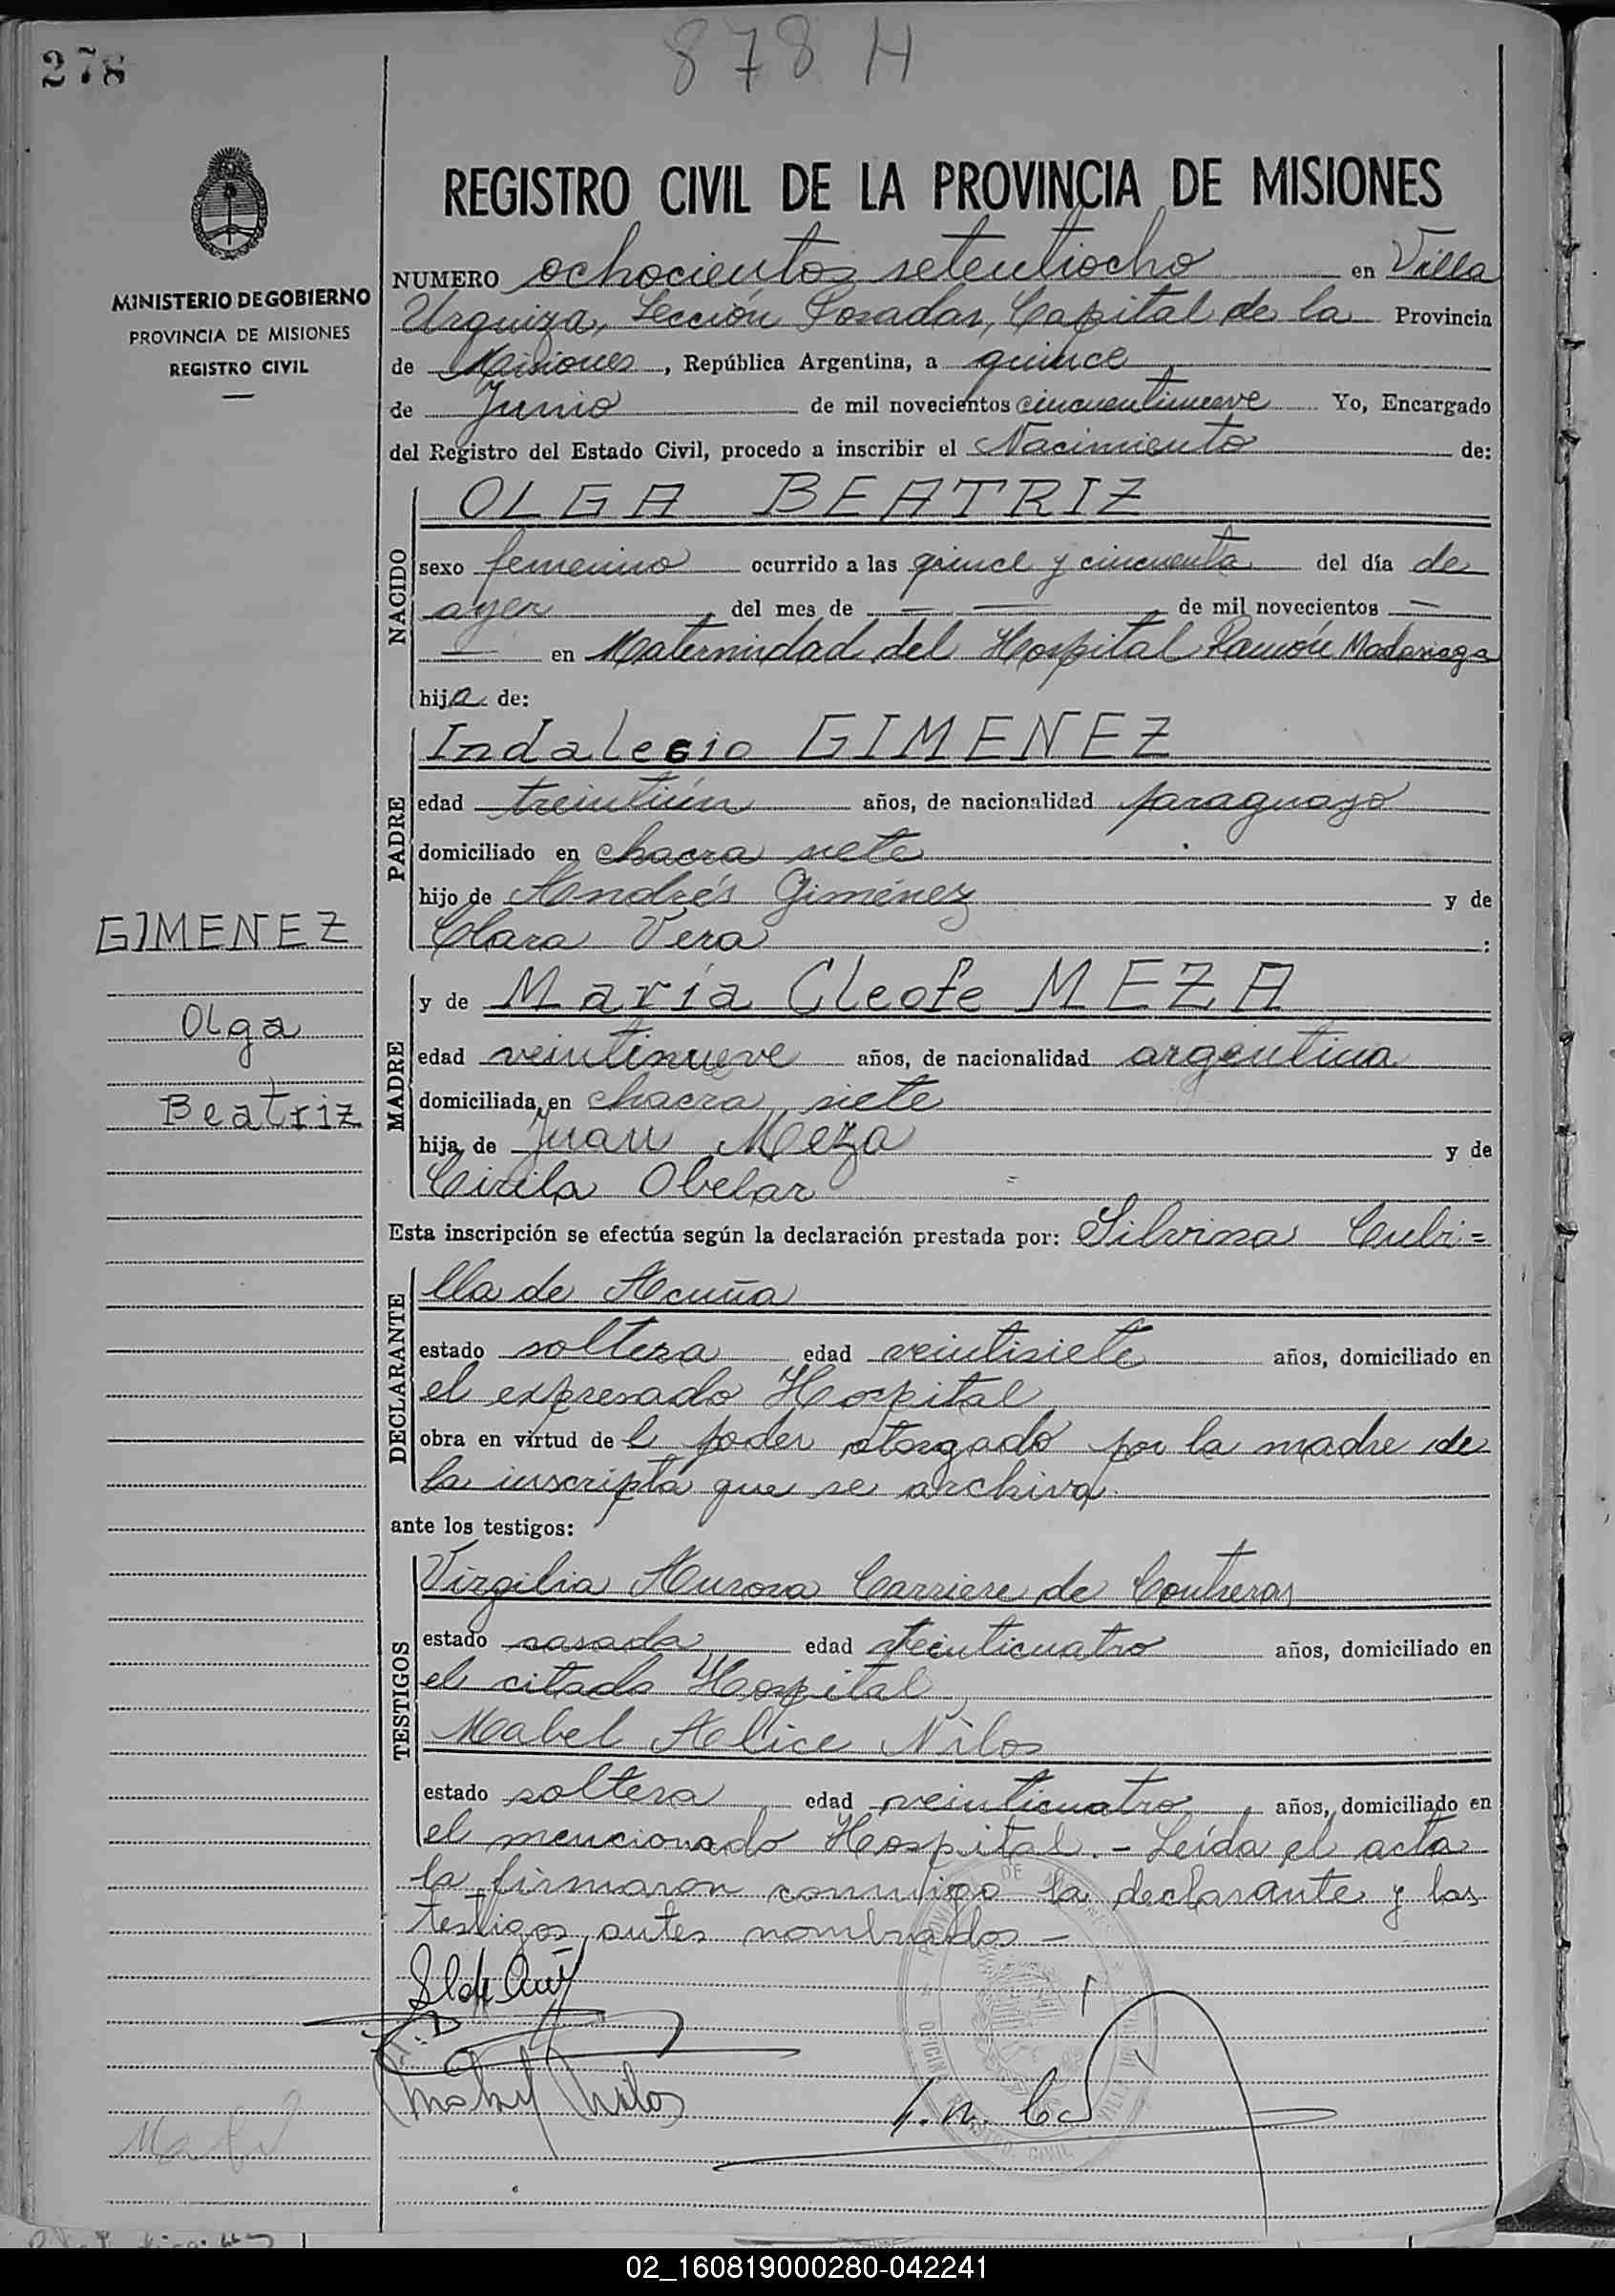 278
878 H
REGISTRO CIVIL DE LA PROVINCIA DE MISIONES
MINISTERIO DE GOBIERNO
PROVINCIA DE MISIONES
REGISTRO CIVIL
NUMERO ochocientos setentiocho en Villa
Urquiza, Sección Posadas, Capital de la Provincia
de Misiones, República Argentina, a quince
de Junio de mil novecientos cincuentinueve Yo, Encargado
del Registro del Estado Civil, procedo a inscribir el Nacimiento de:
NACIDO
OLGA BEATRIZ
sexo femenino ocurrido a las quince y cincuenta del día de
ayer, del mes de — — , de mil novecientos —
— en Maternidad del Hospital Ramón Madariaga
hija de:
PADRE
Indalecio GIMENEZ
edad treintiún años, de nacionalidad paraguayo
domiciliado en chacra siete
hijo de Andrés Giménez y de
Clara Vera :
GIMENEZ
Olga
Beatriz
MADRE
y de María Cleofe MEZA
edad veintinueve años, de nacionalidad argentina
domiciliada en chacra siete
hija de Juan Meza y de
Cirila Obelar
Esta inscripción se efectúa según la declaración prestada por: Silvina Cubi=
DECLARANTE
lla de Acuña
estado soltera edad veintisiete años, domiciliado en
el expresado Hospital
obra en virtud del poder otorgado por la madre de
la inscripta que se archiva.
ante los testigos:
TESTIGOS
Virgilia Aurora Carriere de Contreras
estado casada edad veinticuatro años, domiciliado en
el citado Hospital
Mabel Alice Nilos
estado soltera edad veinticuatro años, domiciliado en
el mencionado Hospital. - Leída el acta
la firmaron conmigo la declarante y las
testigos antes nombrados -
Mabel Nilos
02_160819000280-042241